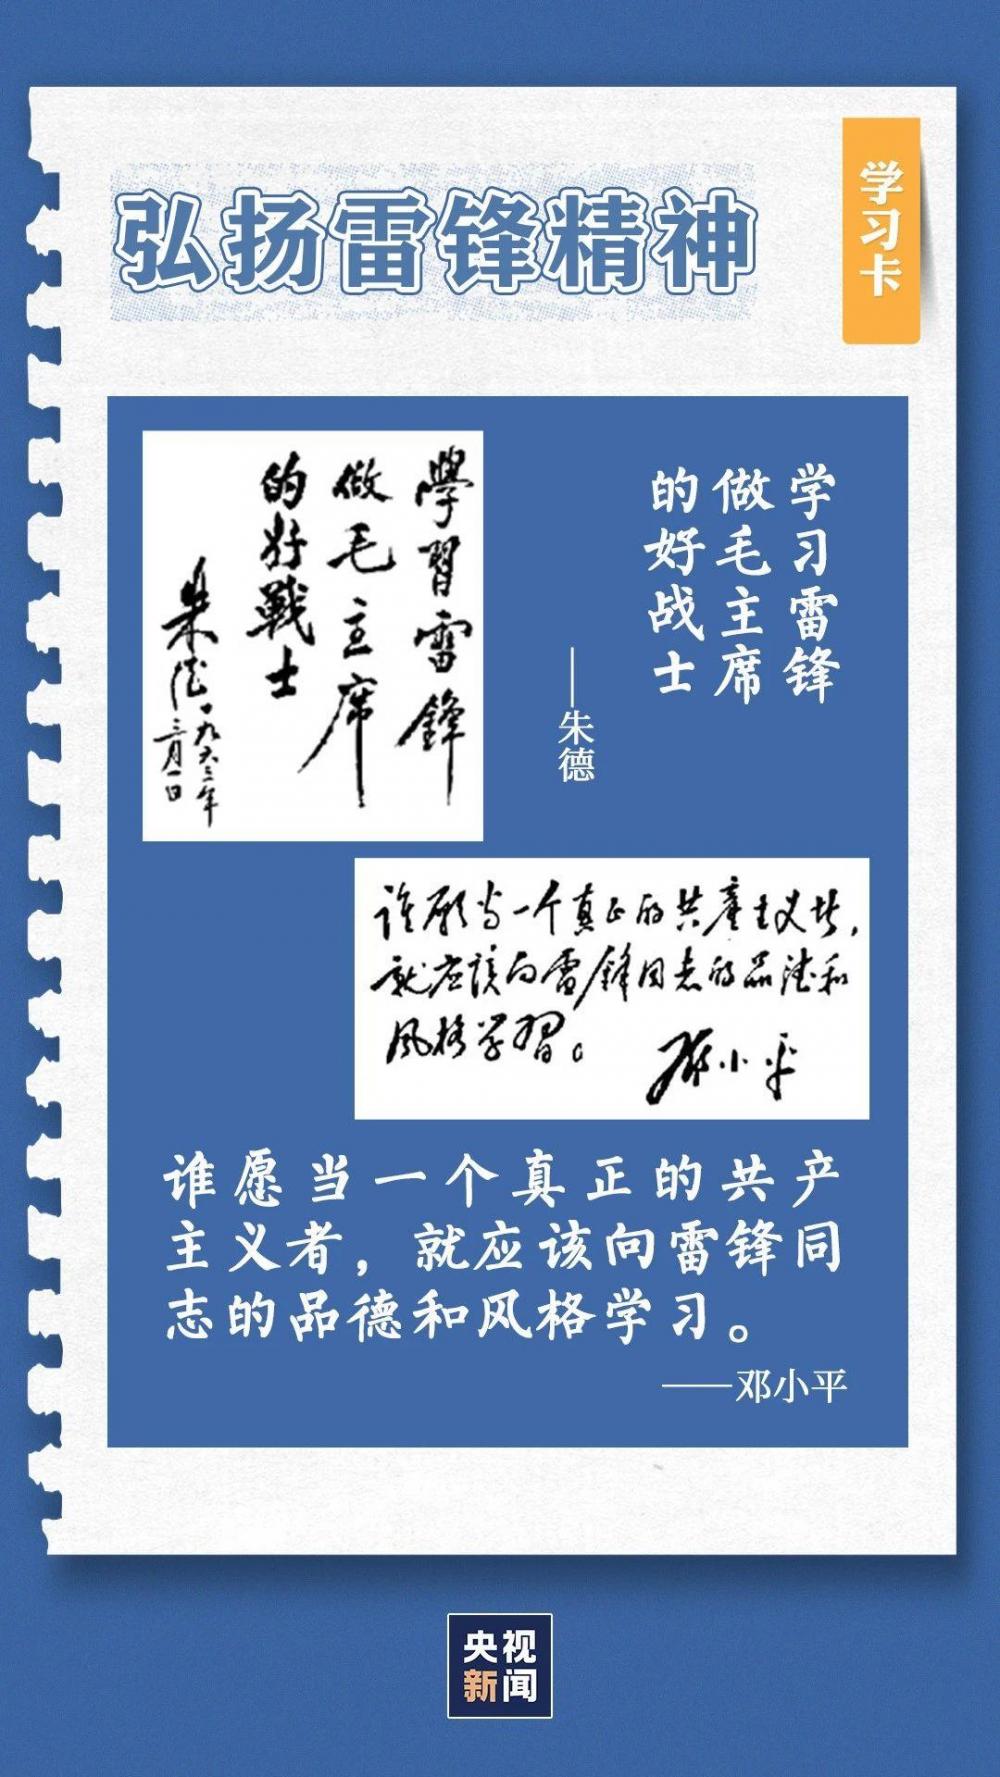 弘扬雷锋精神
学习卡
學習雷鋒
做毛主席
的好戰士
朱德
一九六三年
三月一日
学习雷锋
做毛主席
的好战士
——朱德
谁愿当一个真正的共产主义者，
就应该向雷锋同志的品德和
风格学习。
邓小平
谁愿当一个真正的共产
主义者，就应该向雷锋同
志的品德和风格学习。
——邓小平
央视
新闻